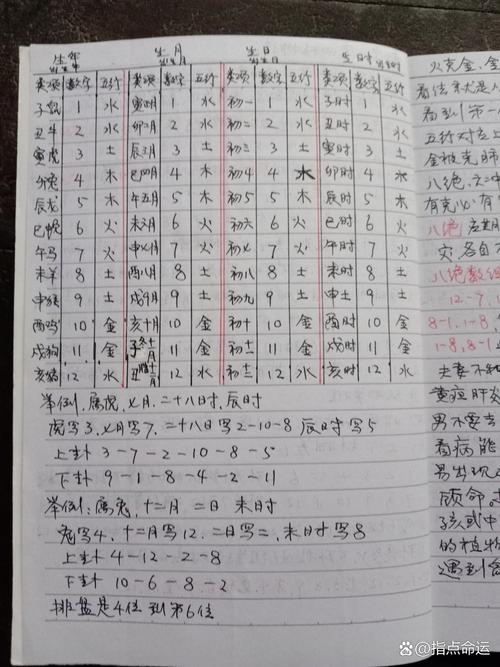 生年 生月 生日 生时
类项 数字 五行 类项 数字 五行 类项 数字 五行 类项 数字 五行
子鼠 1 水 寅正月 1 水 初一 1 水 子时 1 水
丑牛 2 水 卯二月 2 水 初二 2 水 丑时 2 水
寅虎 3 土 辰三月 3 土 初三 3 土 寅时 3 土
卯兔 4 木 巳四月 4 木 初四 4 水 卯时 4 水
辰龙 5 木 午五月 5 木 初五 5 木 辰时 5 木
巳蛇 6 火 未六月 6 火 初六 6 火 巳时 6 火
午马 7 火 申七月 7 火 初七 7 火 午时 7 火
未羊 8 土 酉八月 8 土 初八 8 土 未时 8 土
申猴 9 土 戌9月 9 土 初九 9 土 申土 9 土
酉鸡 10 金 亥十月 10 金 初十 10 金 酉时 10 金
戌狗 11 金 子冬十一月 11 金 初十一 11 金 戌时 11 金
亥猪 12 水 丑腊十二月 12 水 初十二 12 水 亥时 12 水
举例,属虎,七月,二十八日时,辰时
虎写3,七月写7,二十八日写2-10-8 辰时写5
上卦 3-7-2-10-8-5
下卦 9-1-8-4-2-11
举例:属兔,十二月 二日 未时
兔写4,十二月写12,二日写二,未时写8
上卦 4-12-2-8
下卦 10-6-8-2
排盘是4位到第6位
火克金,金
看住来就是人
看到第一
五行对应
金被克肺
八绝,六二冲
有克必有
八绝
灾,各自不
八绝数组
12-7,
8-1,1-8
1-8,8-1
夫妻不和
黄疸肝炎
男不要去
看病能
易出现
颁命
孩或中
的植物
遇到
@指点命运